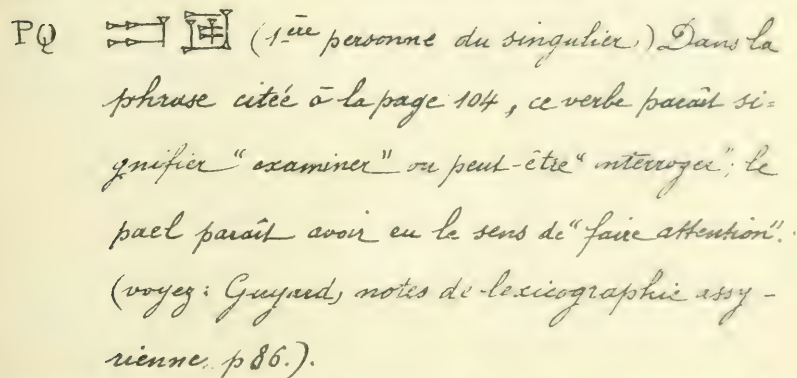 PQ (1ère personne du singulier.) Dans la
phrase citée à la page 104, ce verbe paraît si=
gnifier "examiner" ou peut-être "interroger"; le
pael paraît avoir eu le sens de "faire attention".
(voyez: Guyard, notes de lexicographie assy-
rienne. p 86.).